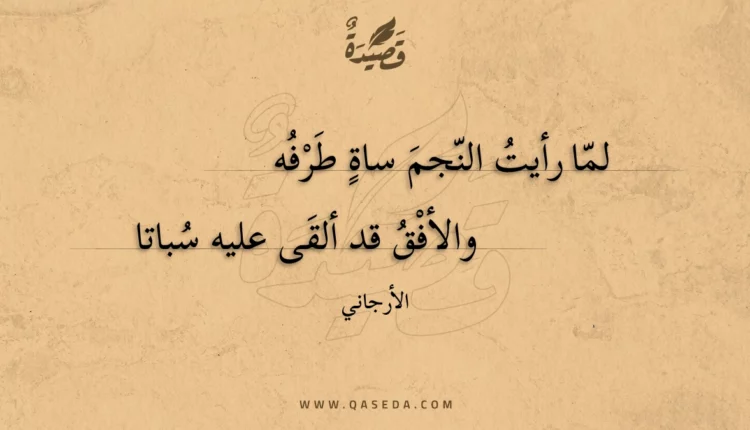 قَصِيْدَةٌ
لمّا رأيتُ النّجمَ ساةٍ طَرْفُه
والأفْقُ قد ألقَى عليه سُباتا
الأرجاني
WWW.QASEDA.COM